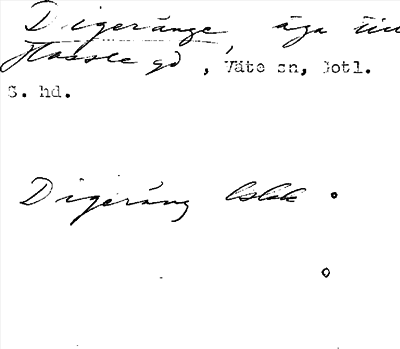 Digeränge, äga till
Hassle gd, Väte sn, Gotl.
S. hd.
Digeräng